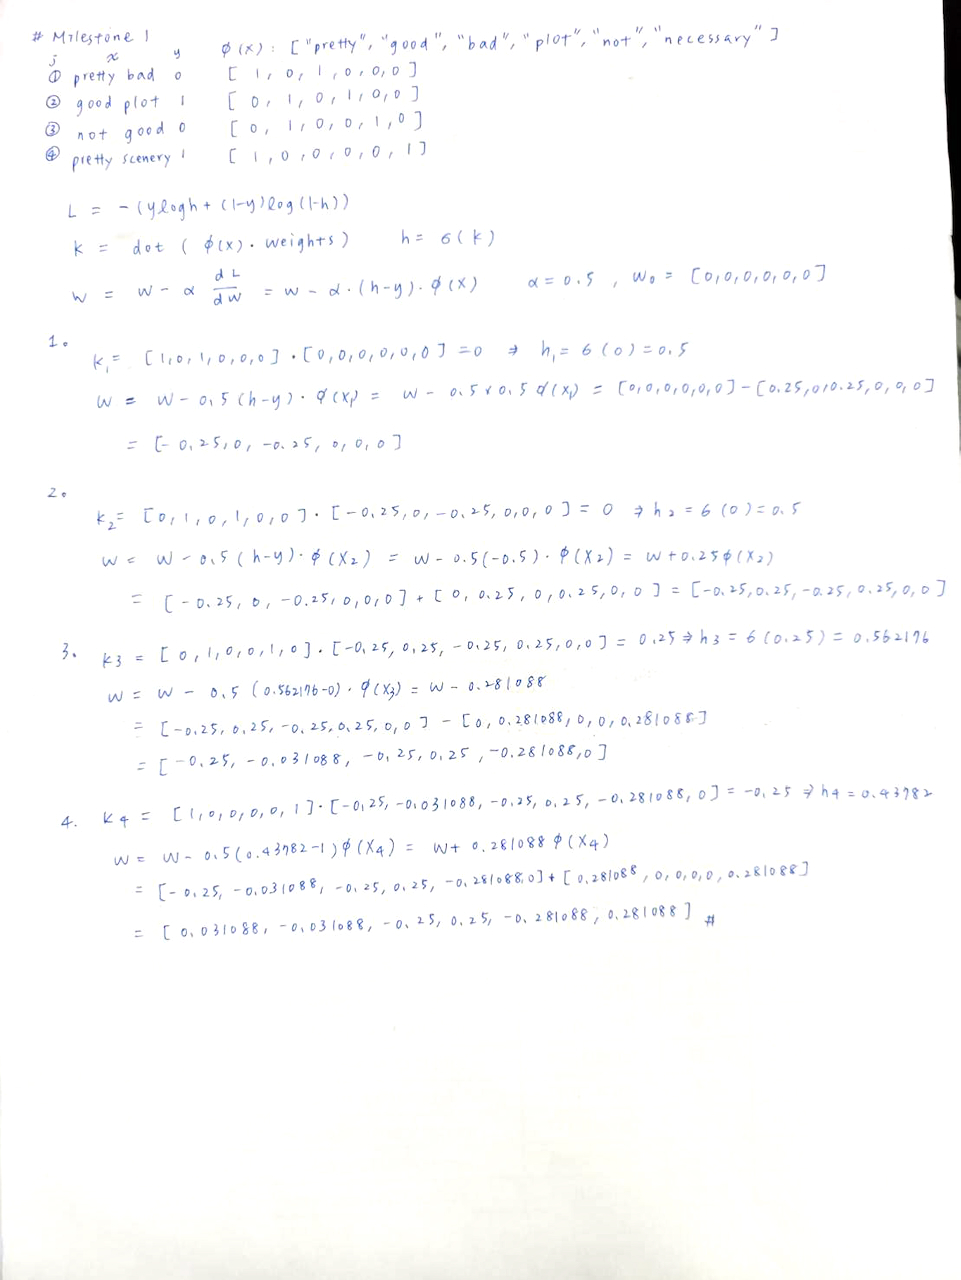 # Milestone 1
j x y φ(x) : ["pretty", "good", "bad", "plot", "not", "necessary"]
① pretty bad 0 [1, 0, 1, 0, 0, 0]
② good plot 1 [0, 1, 0, 1, 0, 0]
③ not good 0 [0, 1, 0, 0, 1, 0]
④ pretty scenery 1 [1, 0, 0, 0, 0, 1]
L = -(ylogh + (1-y)log(1-h))
k = dot (φ(x). weights) h = б(k)
w = w - α dL/dw = w - α·(h-y)·φ(x) α = 0.5 , w₀ = [0,0,0,0,0,0]
1.
k₁ = [1,0,1,0,0,0]·[0,0,0,0,0,0] = 0 ⇒ h₁ = б(0) = 0.5
w = w - 0.5(h-y)·φ(x₁) = w - 0.5×0.5 φ(x₁) = [0,0,0,0,0,0] - [0.25,0,0.25,0,0,0]
= [-0.25,0,-0.25,0,0,0]
2.
k₂ = [0,1,0,1,0,0]·[-0.25,0,-0.25,0,0,0] = 0 ⇒ h₂ = б(0) = 0.5
w = w - 0.5(h-y)·φ(x₂) = w - 0.5(-0.5)·φ(x₂) = w + 0.25φ(x₂)
= [-0.25, 0, -0.25,0,0,0] + [0, 0.25, 0, 0.25, 0, 0] = [-0.25,0.25,-0.25,0.25,0,0]
3. k3 = [0,1,0,0,1,0]·[-0.25, 0.25, -0.25, 0.25,0,0] = 0.25 ⇒ h3 = б(0.25) = 0.562176
w = w - 0.5(0.562176-0)·φ(x₃) = w - 0.281088
= [-0.25, 0.25, -0.25,0.25,0,0] - [0, 0.281088,0,0,0.281088]
= [-0.25, -0.031088, -0.25, 0.25, -0.281088,0]
4. k4 = [1,0,0,0,0,1]·[-0.25, -0.031088, -0.25, 0.25, -0.281088, 0] = -0.25 ⇒ h4 = 0.43782
w = w - 0.5(0.43782-1)φ(x₄) = w + 0.281088 φ(x₄)
= [-0.25, -0.031088, -0.25, 0.25, -0.281088,0] + [0.281088, 0,0,0,0, 0.281088]
= [0.031088, -0.031088, -0.25, 0.25, -0.281088, 0.281088] #